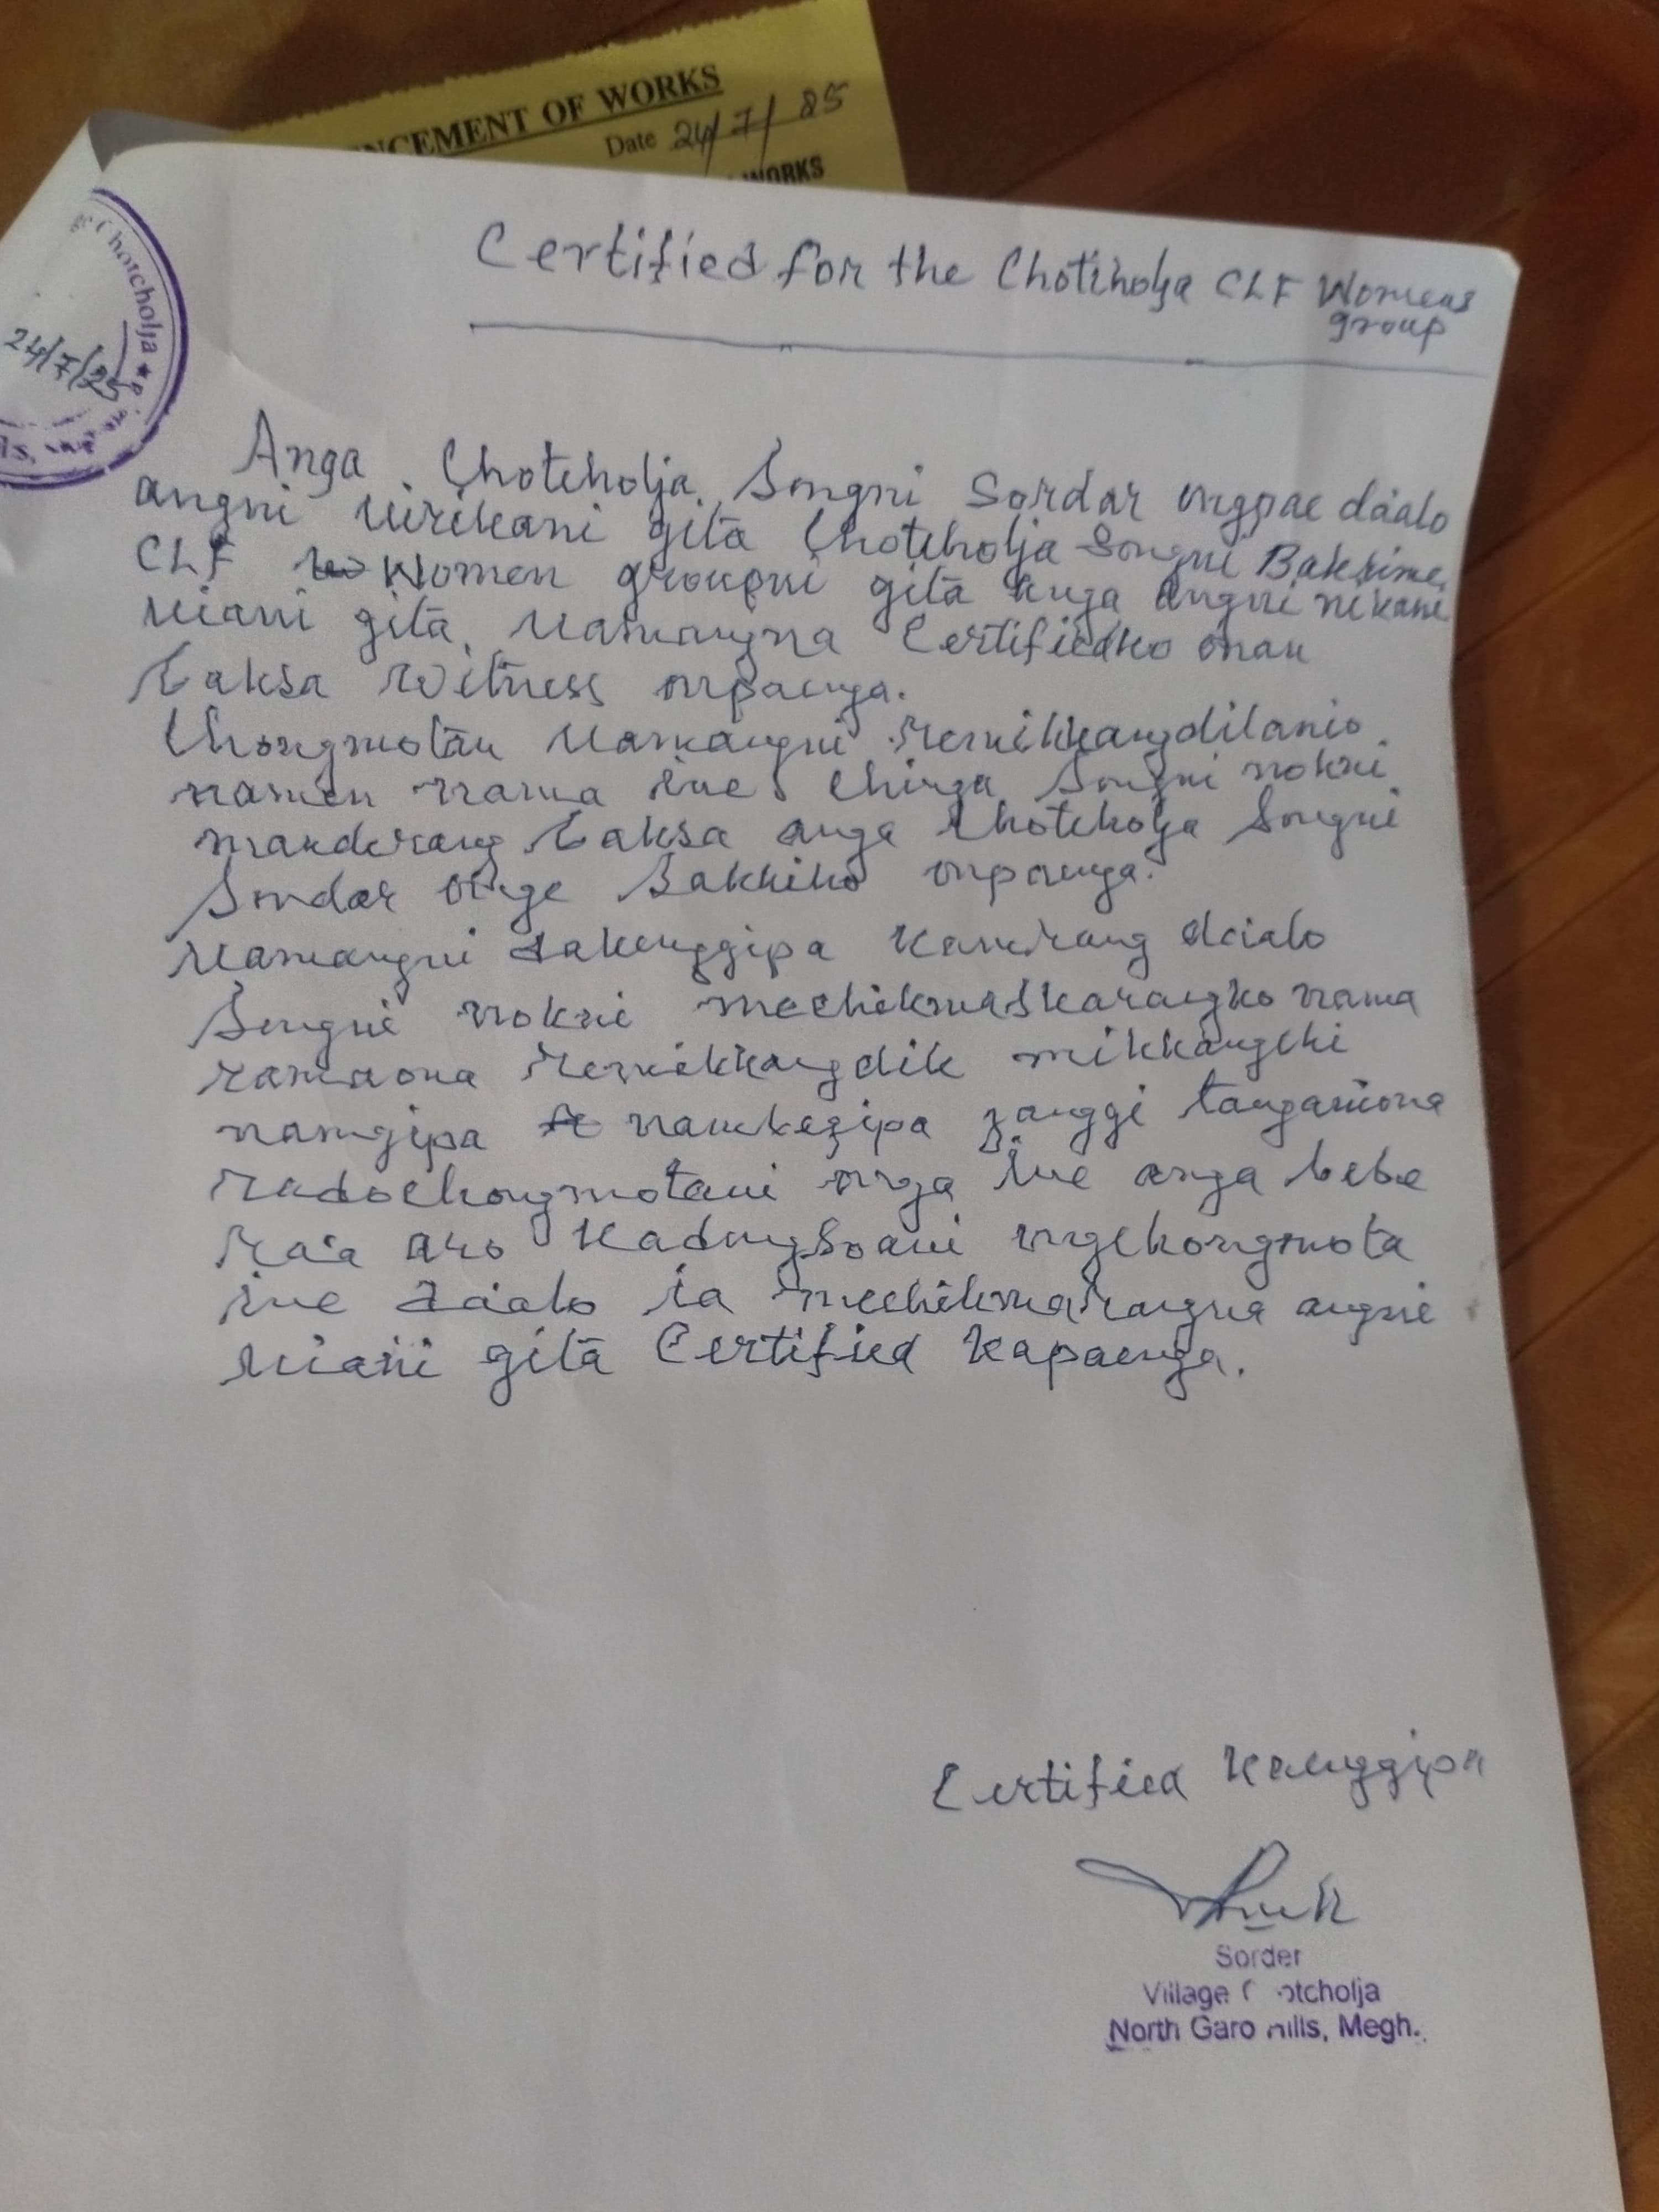 NCEMENT OF WORKS
Date 24/7/25
WORKS
Chotcholja ★
24/7/25
Certified for the Chotcholja CLF Womens
group
Anga Chotcholja Songni Sordar ongpae da·alo
angni u·irikani gita Chotcholja Songni Bakrime
CLF Women groupni gita kuga angni nikani
uiani gita, uamangna Certifiedko onan
baksa witness onpaenga.
Chongmotan uamangni remikkangdilanio
namen nama ine chinga Songni nokni
manderang baksa anga chotcholja Songni
Sordar onge Sakkiko onpaenga.
uamangni dakenggipa kamrang daialo
Songni nokni mechikmaskarangko nama
ramaona remikkangdik mikkangchi
namgipa namkegipa janggi tanganiona
rado chongmotani onga ine anga bebe
ra·a aro kadongsoani ongchongmota
ine da·alo ia mechikmarangna angni
uiani gita Certified kapaenga.
Certified Kaenggipa
Sorder
Village otcholja
North Garo Hills, Megh.